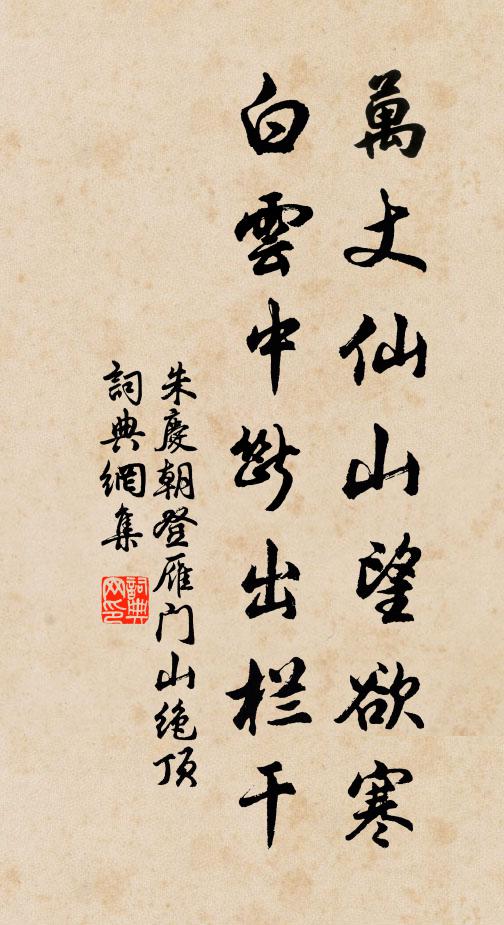 萬丈仙山望欲寒
白雲中斷出栏干
朱慶朝登雁门山绝顶
詞典網集
詞典網印